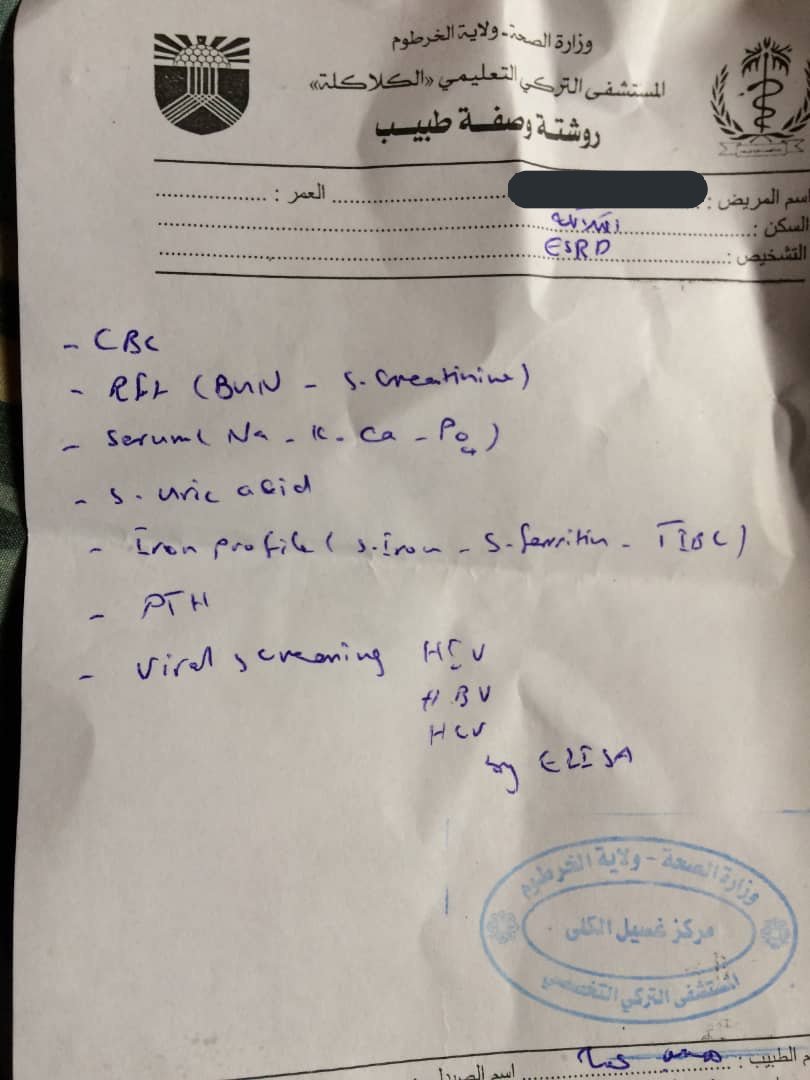 وزارة الصحة - ولاية الخرطوم
المستشفى التركي التعليمي «الكلاكلة»
روشتة وصفة طبيب
اسم المريض : العمر :
السكن :
التشخيص : ESRD
- CBC
- RFT (BUN - S. Creatinine)
- Serum (Na - K - Ca - PO4)
- S. uric acid
- Iron profile (S. Iron - S. ferritin - TIBC)
- PTH
- Viral screening HIV
HBV
HCV
by ELISA
وزارة الصحة - ولاية الخرطوم
مركز غسيل الكلى
المستشفى التركي التخصصي
م الطبيب : اسم الصيدل